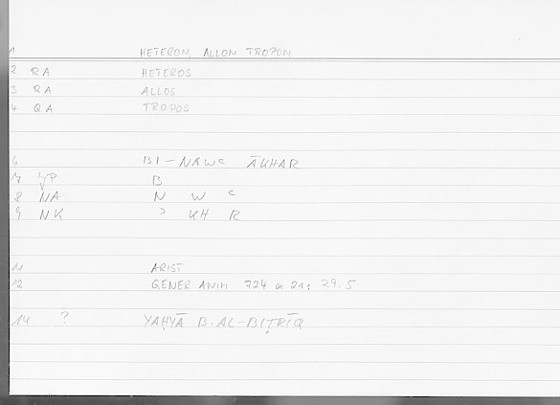 1 HETERON, ALLON TROPON
2 RA HETEROS
3 RA ALLOS
4 QA TROPOS
6 BI-NAWC ĀKHAR
7 YP B
8 NA N W C
9 NK ʾ KH R
11 ARIST
12 GENER ANIM 724 a 21; 29.5
14 ? YAḤYĀ B. AL-BIṬRĪQ